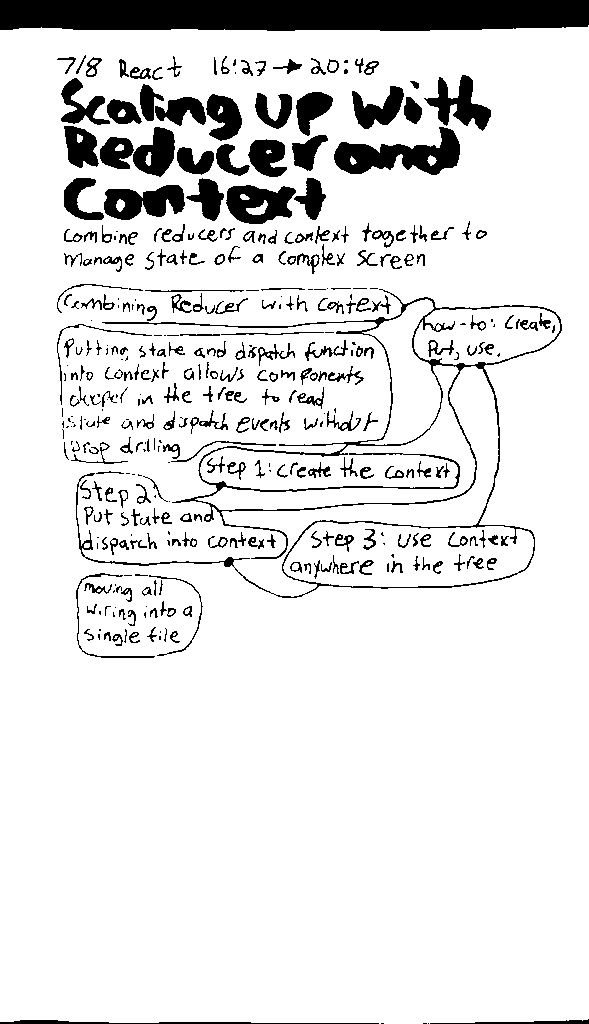 7/8 React 16:27 → 20:48
Scaling up with
Reducer and
Context
Combine reducers and context together to
manage state of a complex screen
Combining Reducer with Context
how-to: Create,
Put, use.
Putting state and dispatch function
into context allows components
deeper in the tree to read
state and dispatch events without
prop drilling
Step 1: Create the context
Step 2:
Put state and
dispatch into context
Step 3: use context
anywhere in the tree
moving all
wiring into a
single file